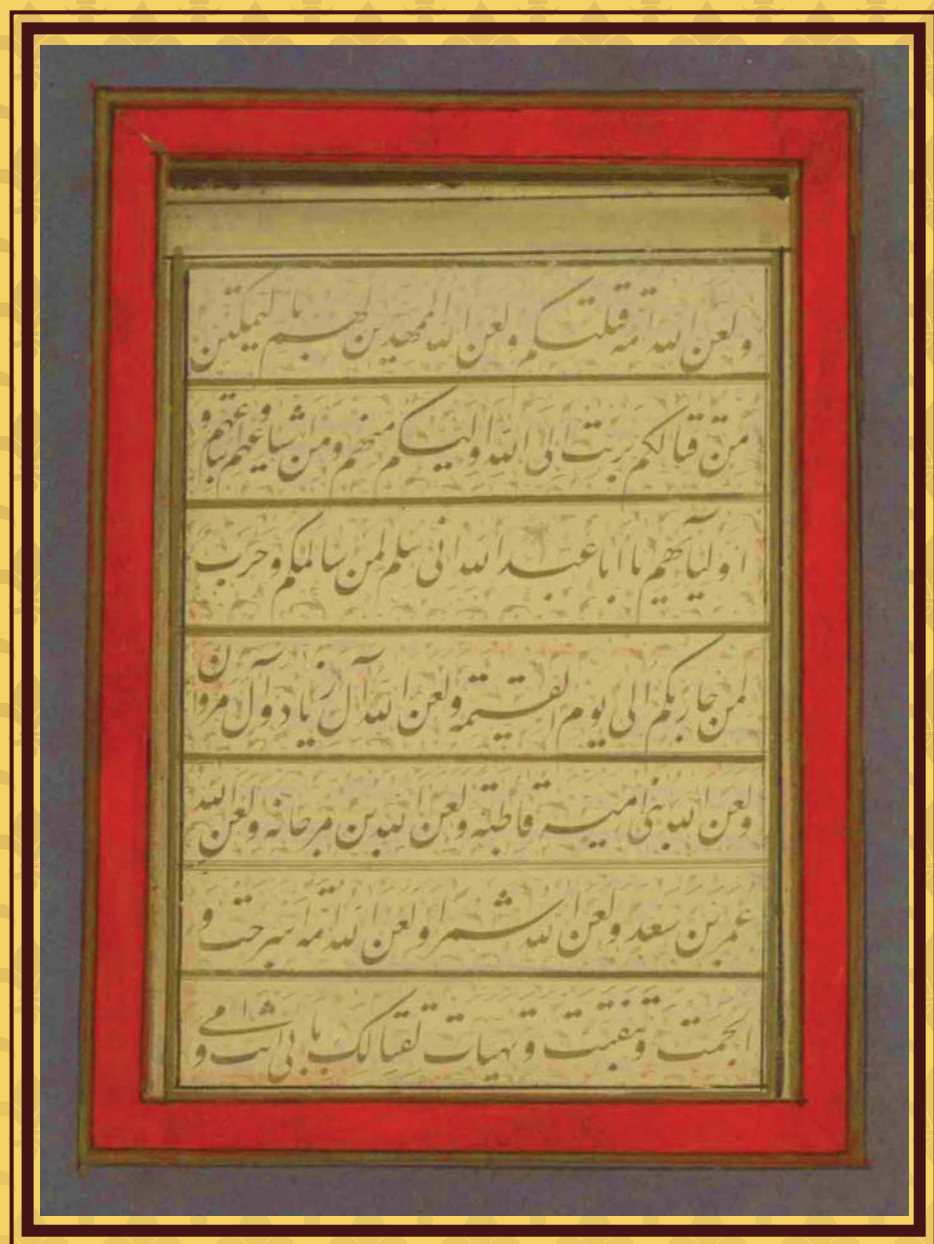 ولعن الله امة قتلتكم ولعن الله الممهدين لهم بالتمكين
من قتالكم برئت الى الله واليكم منهم ومن اشياعهم واتباعهم و
اوليائهم يا اباعبد الله انى سلم لمن سالمكم وحرب
لمن حاربكم الى يوم القيمة ولعن الله آل زياد وآل مروان
ولعن الله بنى امية قاطبة ولعن الله بن مرجانة ولعن الله
عمر بن سعد ولعن الله شمرا ولعن الله امة اسرجت و
الجمت وتنقبت وتهيات لقتالك بابى انت و امى